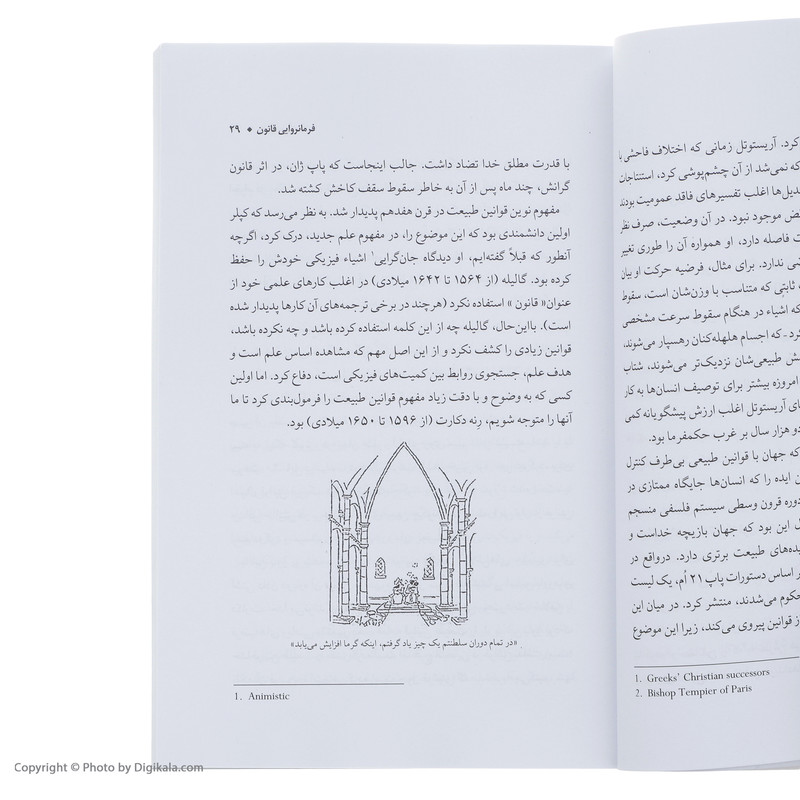 کرد. آریستوتل زمانی که اختلاف فاحشی با
که نمی‌شد از آن چشم‌پوشی کرد، استنتاجات
دیل‌ها اغلب تفسیرهای فاقد عمومیت بودند
موجود نبود. در آن وضعیت، صرف نظر
فاصله دارد، او همواره آن را طوری تغییر
ندارد. برای مثال، فرضیه حرکت او بیان
ثابتی که متناسب با وزن‌شان است، سقوط
که اشیاء در هنگام سقوط سرعت مشخصی
کرد - که اجسام هلهله‌کنان رهسپار می‌شوند،
طبیعی‌شان نزدیک‌تر می‌شوند، شتاب
امروزه بیشتر برای توصیف انسان‌ها به کار
آریستوتل اغلب ارزش پیشگویانه کمی
دو هزار سال بر غرب حکمفرما بود.
که جهان با قوانین طبیعی بی‌طرف کنترل
ایده را که انسان‌ها جایگاه ممتازی در
دوره قرون وسطی سیستم فلسفی منسجم
این بود که جهان بازیچه خداست و
پدیده‌های طبیعت برتری دارد. درواقع در
اساس دستورات پاپ ۲۱ اُم، یک لیست
محکوم می‌شدند، منتشر کرد. در میان این
از قوانین پیروی می‌کند، زیرا این موضوع
1. Greeks' Christian successors
2. Bishop Tempier of Paris
فرمانروایی قانون ◆ ۲۹
با قدرت مطلق خدا تضاد داشت. جالب اینجاست که پاپ ژان، در اثر قانون
گرانش، چند ماه پس از آن به خاطر سقوط سقف کاخش کشته شد.
مفهوم نوین قوانین طبیعت در قرن هفدهم پدیدار شد. به نظر می‌رسد که کپلر
اولین دانشمندی بود که این موضوع را، در مفهوم علم جدید، درک کرد، اگرچه
آنطور که قبلاً گفته‌ایم، او دیدگاه جان‌گرایی۱ اشیاء فیزیکی خودش را حفظ
کرده بود. گالیله (از ۱۵۶۴ تا ۱۶۴۲ میلادی) در اغلب کارهای علمی خود از
عنوان« قانون » استفاده نکرد (هرچند در برخی ترجمه‌های آن کارها پدیدار شده
است). بااین‌حال، گالیله چه از این کلمه استفاده کرده باشد و چه نکرده باشد،
قوانین زیادی را کشف نکرد و از این اصل مهم که مشاهده اساس علم است و
هدف علم، جستجوی روابط بین کمیت‌های فیزیکی است، دفاع کرد. اما اولین
کسی که به وضوح و با دقت زیاد مفهوم قوانین طبیعت را فرمول‌بندی کرد تا ما
آنها را متوجه شویم، رنه دکارت (از ۱۵۹۶ تا ۱۶۵۰ میلادی) بود.
«در تمام دوران سلطنتم یک چیز یاد گرفتم، اینکه گرما افزایش می‌یابد»
1. Animistic
Copyright © Photo by Digikala.com